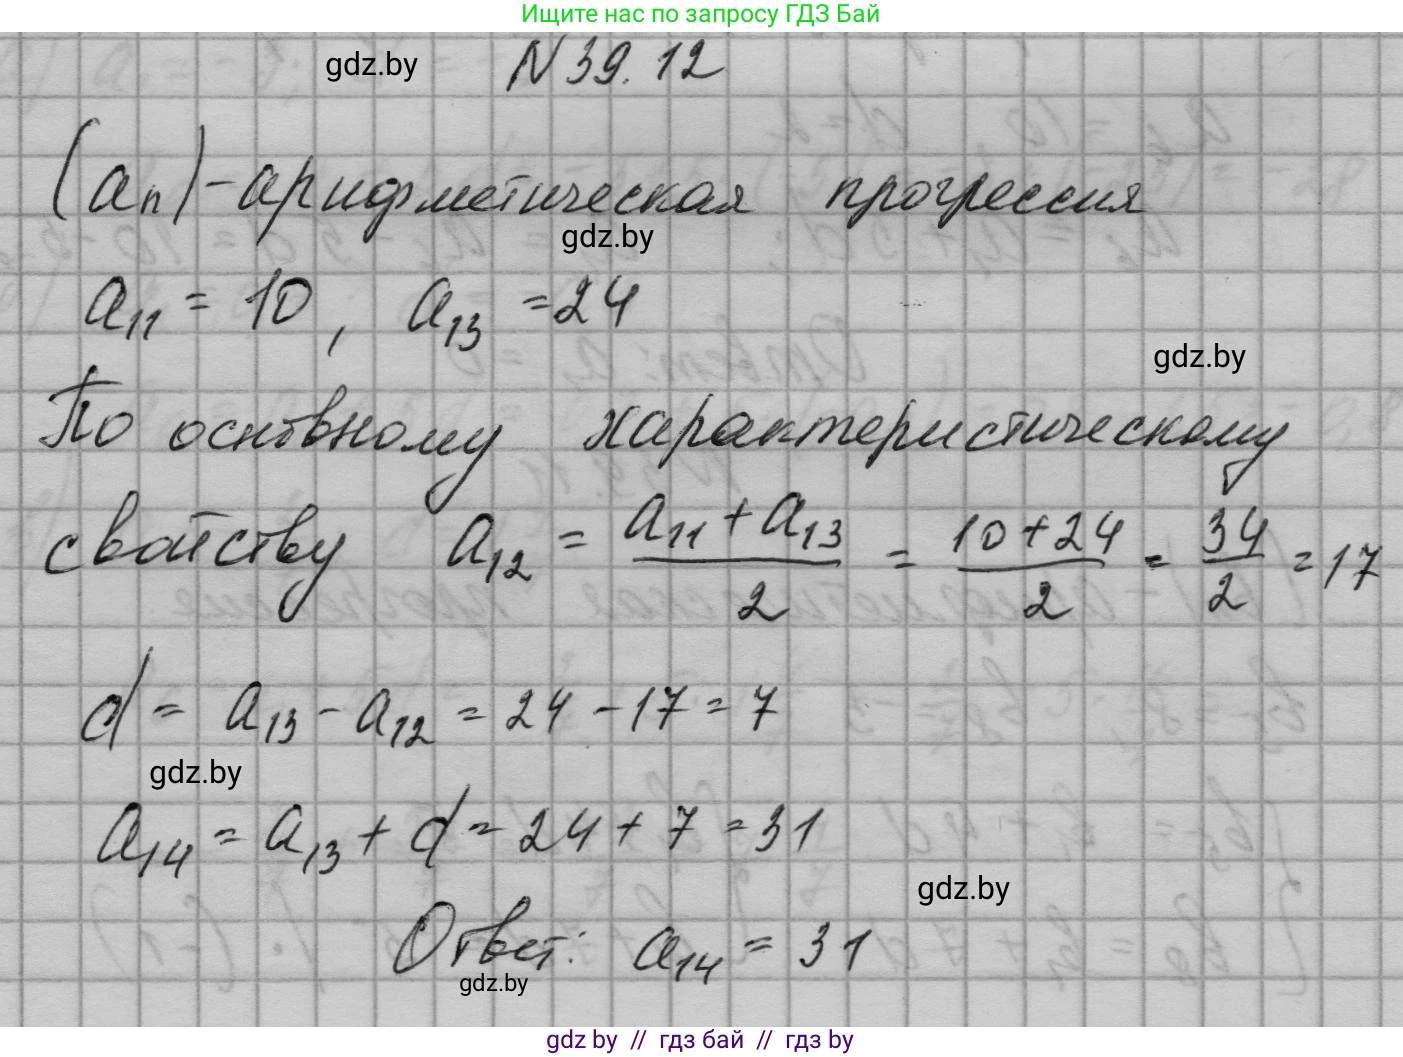 Ищите нас по запросу ГДЗ Бай
gdz.by
N 39.12
(aₙ) - арифметическая прогрессия
gdz.by
a₁₁ = 10, a₁₃ = 24
gdz.by
По основному характеристическому
свойству a₁₂ = (a₁₁ + a₁₃)/2 = (10 + 24)/2 = 34/2 = 17
d = a₁₃ - a₁₂ = 24 - 17 = 7
gdz.by
a₁₄ = a₁₃ + d = 24 + 7 = 31
gdz.by
Ответ: a₁₄ = 31
gdz.by
gdz by // гдз бай // гдз by